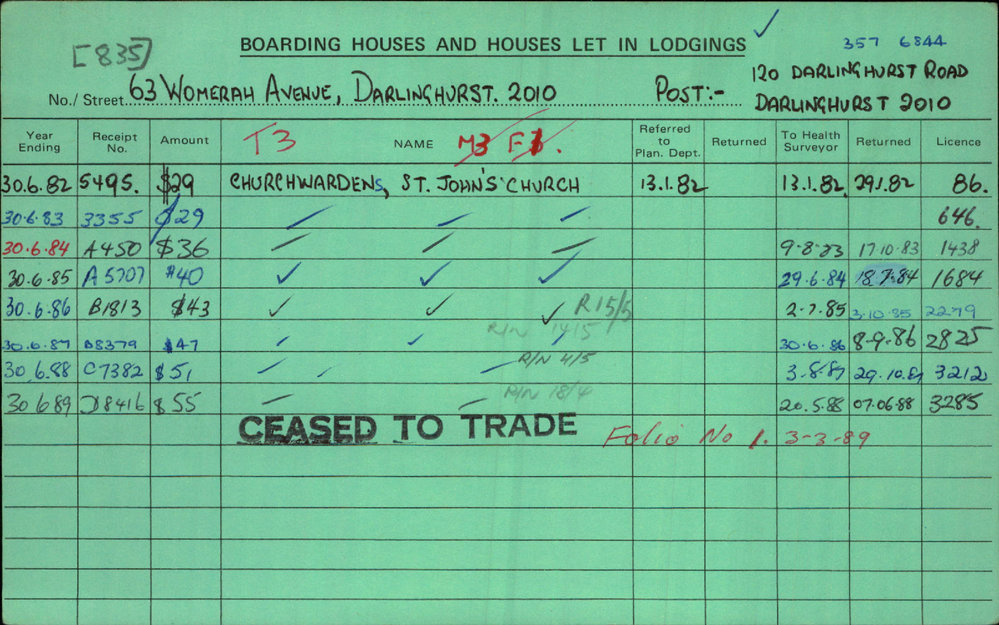 [835]
BOARDING HOUSES AND HOUSES LET IN LODGINGS ✓ 357 6844
No./ Street 63 WOMERAH AVENUE, DARLINGHURST. 2010 POST:- 120 DARLINGHURST ROAD
DARLINGHURST 2010
Year Ending Receipt No. Amount T3 NAME M3 F Referred to Plan. Dept. Returned To Health Surveyor Returned Licence
30.6.82 5495. $29 CHURCHWARDENS, ST. JOHN'S CHURCH 13.1.82 13.1.82 29.1.82 86.
30.6.83 3355 $29 646.
30.6.84 A450 $36 9-8-83 17.10.83 1438
30.6.85 A5707 $40 ✓ ✓ ✓ 29.6.84 18.7.84 1684
30.6.86 B1813 $43 ✓ ✓ ✓ R15/5 2-7.85 3.10.85 2279
R/N 14/5
30.6.87 B8379 $47 30.6.86 8-9.86 2825
R/N 4/5
30.6.88 C7382 $51 3.8.87 29.10.87 3212
R/N 18/4
30 6 89 D8416 $55 20.5.88 07.06.88 3285
CEASED TO TRADE Folio No 1. 3-3-89